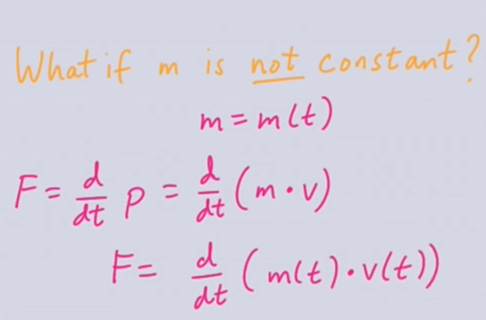 What if m is not constant?
m = m(t)
F = d/dt p = d/dt (m · v)
F = d/dt (m(t) · v(t))